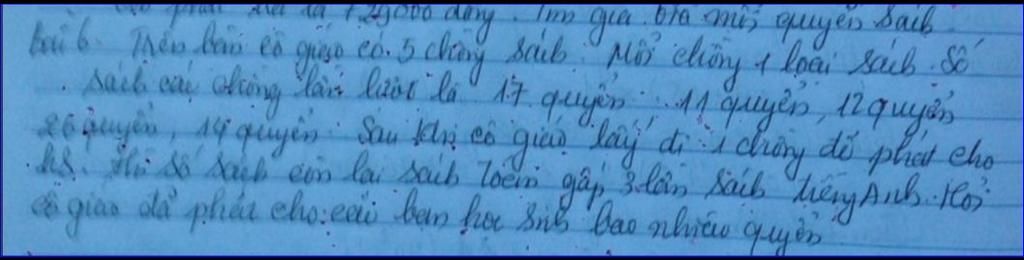 cô phải trả là 129000 đồng. Tìm giá bìa mỗi quyển sách
bài 6. Trên bàn cô giáo có 5 chồng sách. Mỗi chồng 1 loại sách. Số
sách các chồng lần lượt là 17 quyển, 11 quyển, 12 quyển
26 quyển, 14 quyển. Sau khi cô giáo lấy đi 1 chồng để phát cho
hs. thì số sách còn lại sách Toán gấp 3 lần sách tiếng Anh. Hỏi
cô giáo đã phát cho các bạn học sinh bao nhiêu quyển